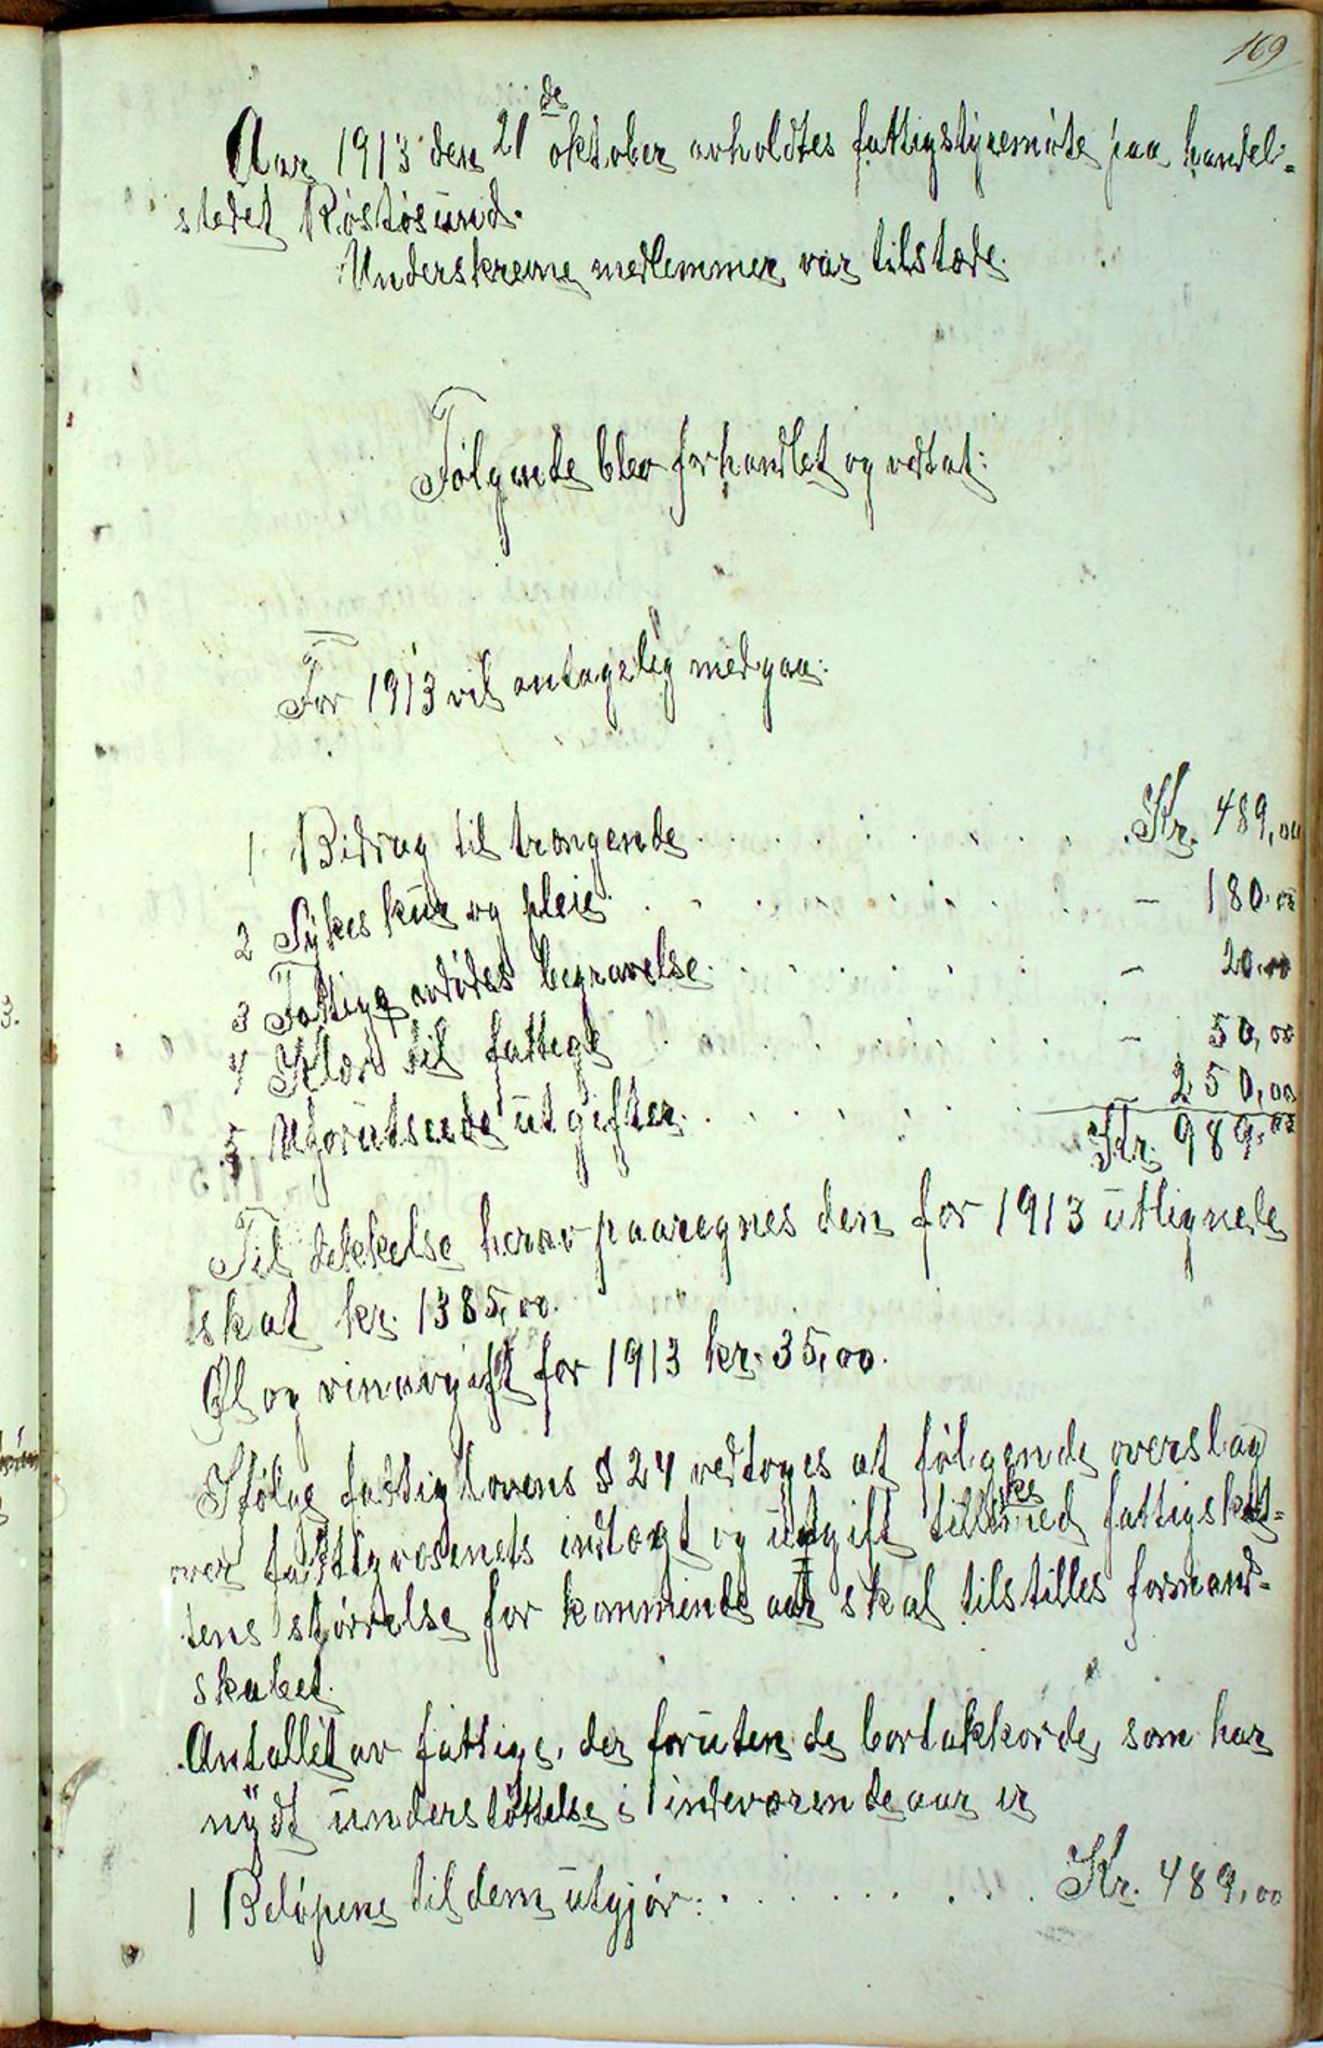 169
Aar 1913 den 21de oktober avholdtes fattigstyremøte paa handel-
stedet Røstøsund.
Underskrevne medlemmer var tilstæde.
Følgende blev forhandlet og vedtat:
For 1913 vil antagelig medgaa:
1 Bidrag til trængende . . . . . . . . . . Kr. 489,00
2 Sykes kur og pleie . . . . . . . . . . — 180.00
3 Fattige avdødes begravelse . . . . . . . . — 20,00
4 Klær til fattige . . . . . . . . . . — 50,00
5 Uforutseede utgifter . . . . . . . . — 250,00
Kr. 989,00
Til dækkelse herav paaregnes den for 1913 utlignede
skat kr. 1385,00.
Øl og vinavgift for 1913 kr. 35,00.
Ifølge fattiglovens § 24 vedtoges at følgende overslag
over fattigvæsenets indtægt og utgift tillikemed fattigskat-
tens størrelse for kommende aar skal tilstilles formand-
skabet.
Antallet av fattige, der foruten de bortakkorde, som har
nydt understøttelse i indeværende aar er
1 Beløpene til dem utgjør: . . . . . . . . . Kr. 489,00